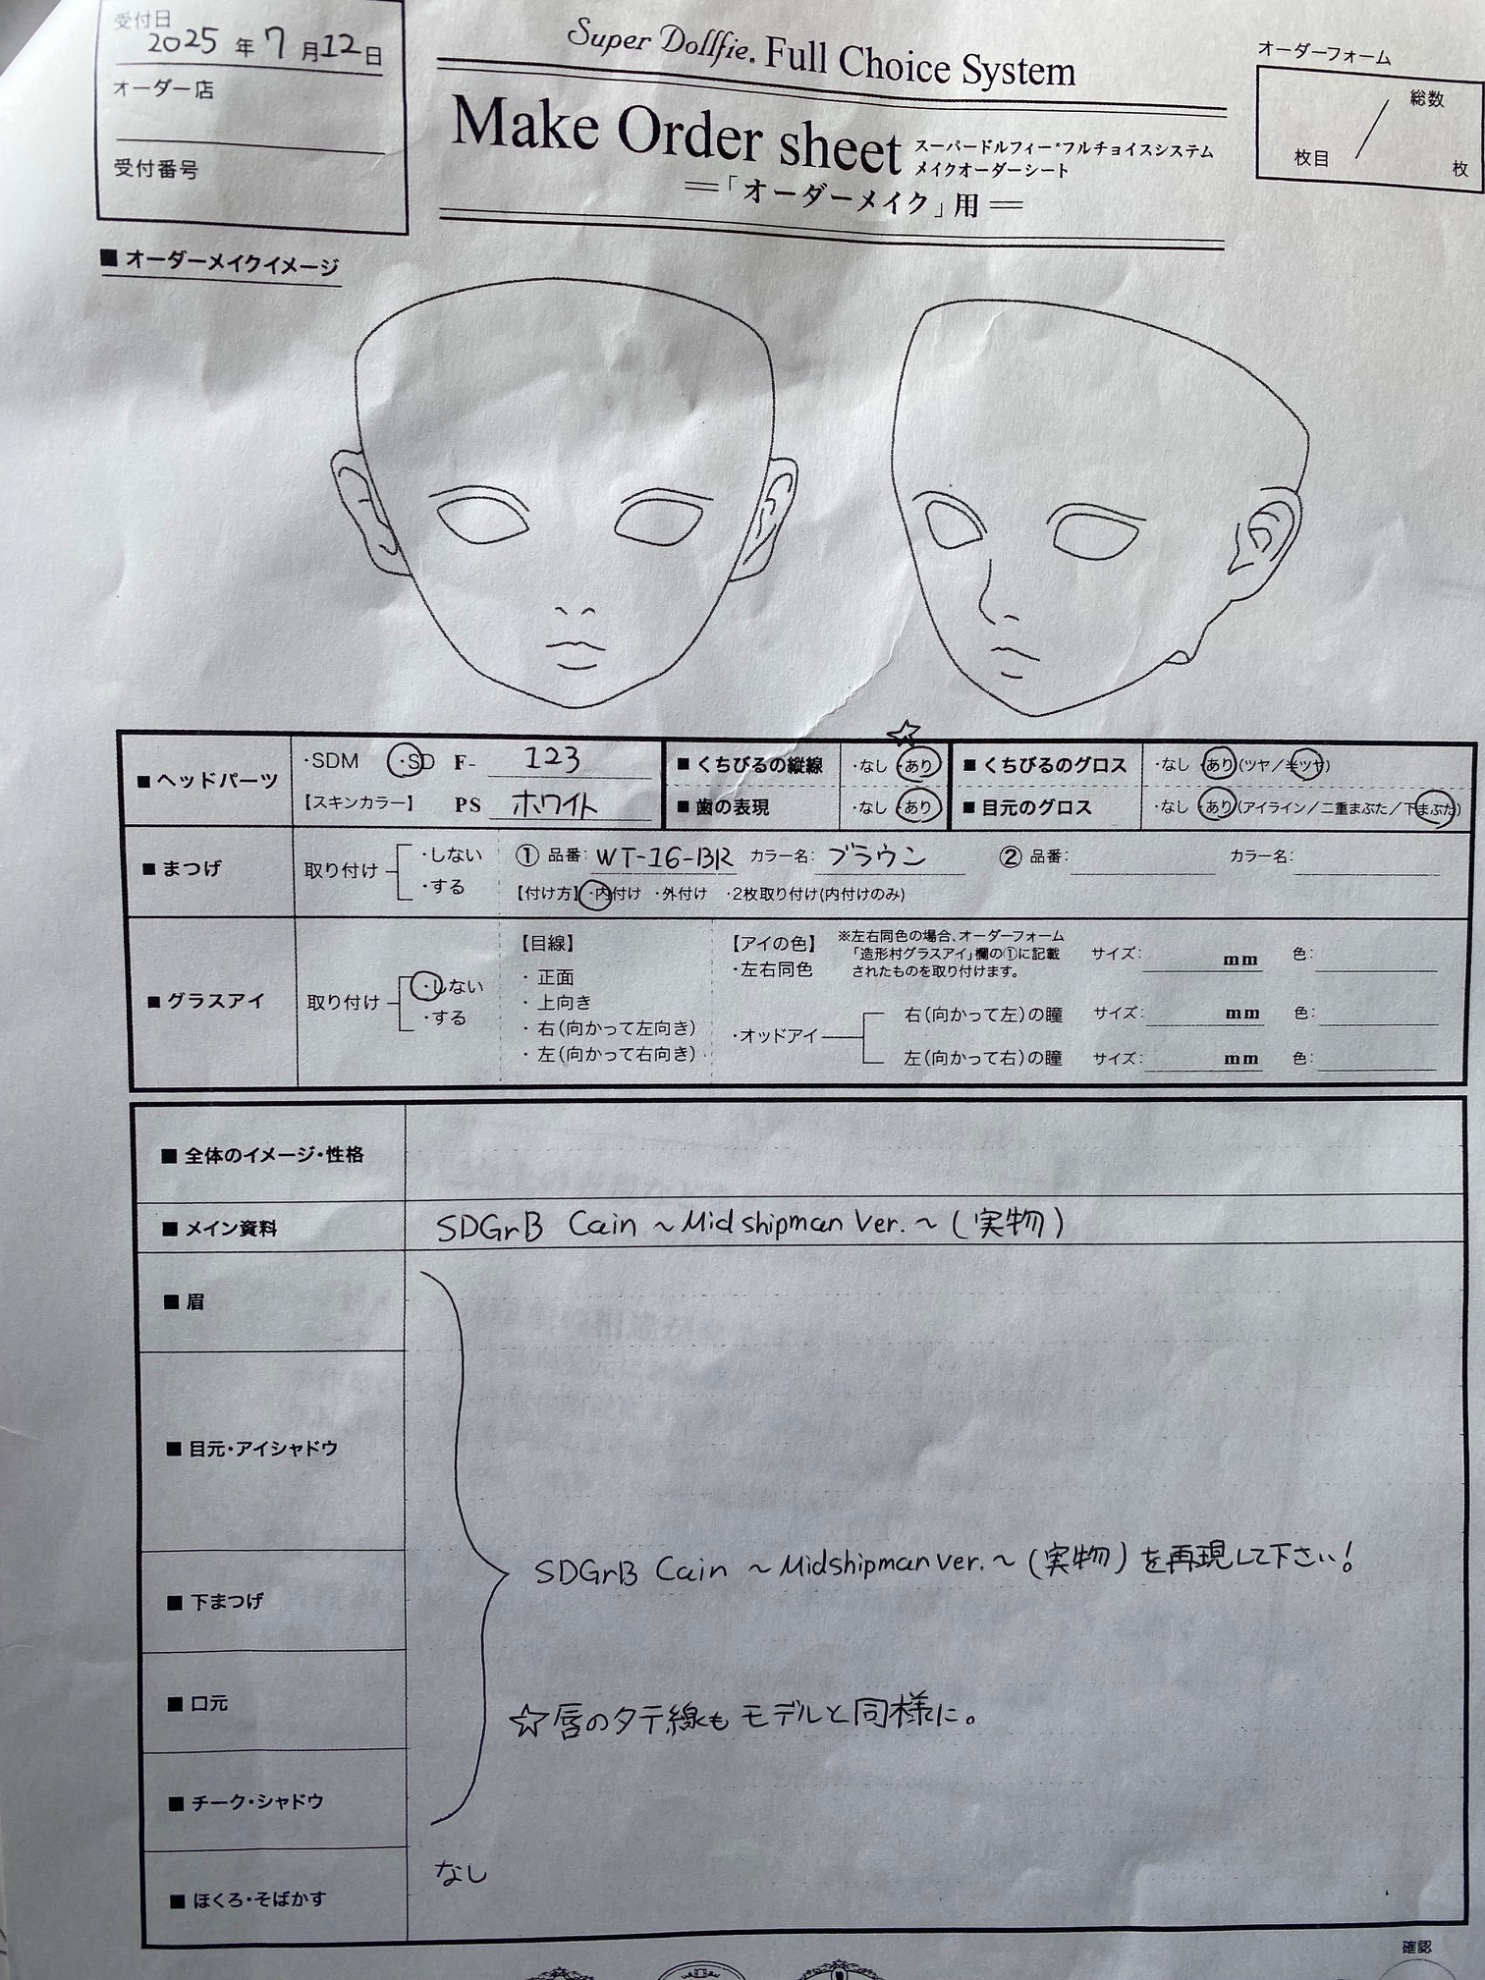 受付日
2025年7月12日
オーダー店
受付番号
Super Dollfie. Full Choice System
Make Order sheet スーパードルフィー・フルチョイスシステム
メイクオーダーシート
「オーダーメイク」用
オーダーフォーム
総数
枚目 / 枚
■ オーダーメイクイメージ
■ ヘッドパーツ
・SDM ・SD F- 123
【スキンカラー】 PS ホワイト
■ くちびるの縦線 ・なし ・あり
☆
■ 歯の表現 ・なし ・あり
■ くちびるのグロス ・なし ・あり(ツヤ/半ツヤ)
■ 目元のグロス ・なし ・あり(アイライン/二重まぶた/下まぶた)
■ まつげ
取り付け ・しない
・する
① 品番: WT-16-BR カラー名: ブラウン ② 品番: カラー名:
【付け方】 ・内付け ・外付け ・2枚取り付け(内付けのみ)
■ グラスアイ
取り付け ・しない
・する
【目線】
・正面
・上向き
・右(向かって左向き)
・左(向かって右向き)
【アイの色】 ※左右同色の場合、オーダーフォーム
「造形村グラスアイ」欄の①に記載
されたものを取り付けます。
・左右同色 サイズ: mm 色:
・オッドアイ
右(向かって左)の瞳 サイズ: mm 色:
左(向かって右)の瞳 サイズ: mm 色:
■ 全体のイメージ・性格
■ メイン資料 SDGrB Cain ~Midshipman Ver.~(実物)
■ 眉
■ 目元・アイシャドウ
SDGrB Cain ~Midshipman ver.~(実物)を再現して下さい!
■ 下まつげ
■ 口元
☆唇のタテ線もモデルと同様に。
■ チーク・シャドウ
■ ほくろ・そばかす なし
確認